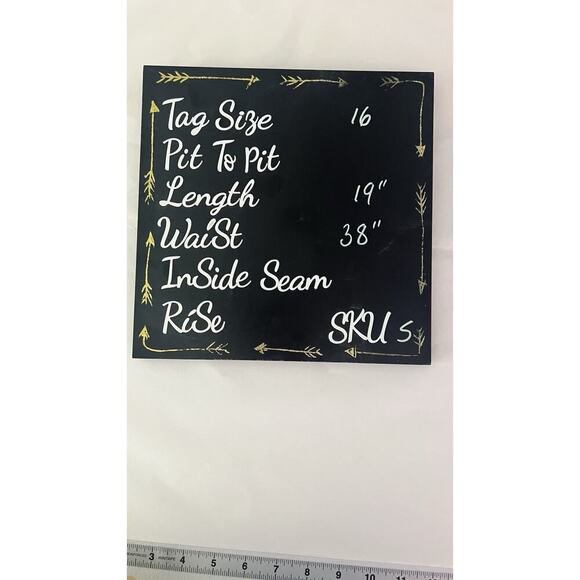 Tag Size 16
Pit To Pit
Length 19"
Waist 38"
InSide Seam
RiSe SKU S
3 4 5 6 7 8 9 10 11